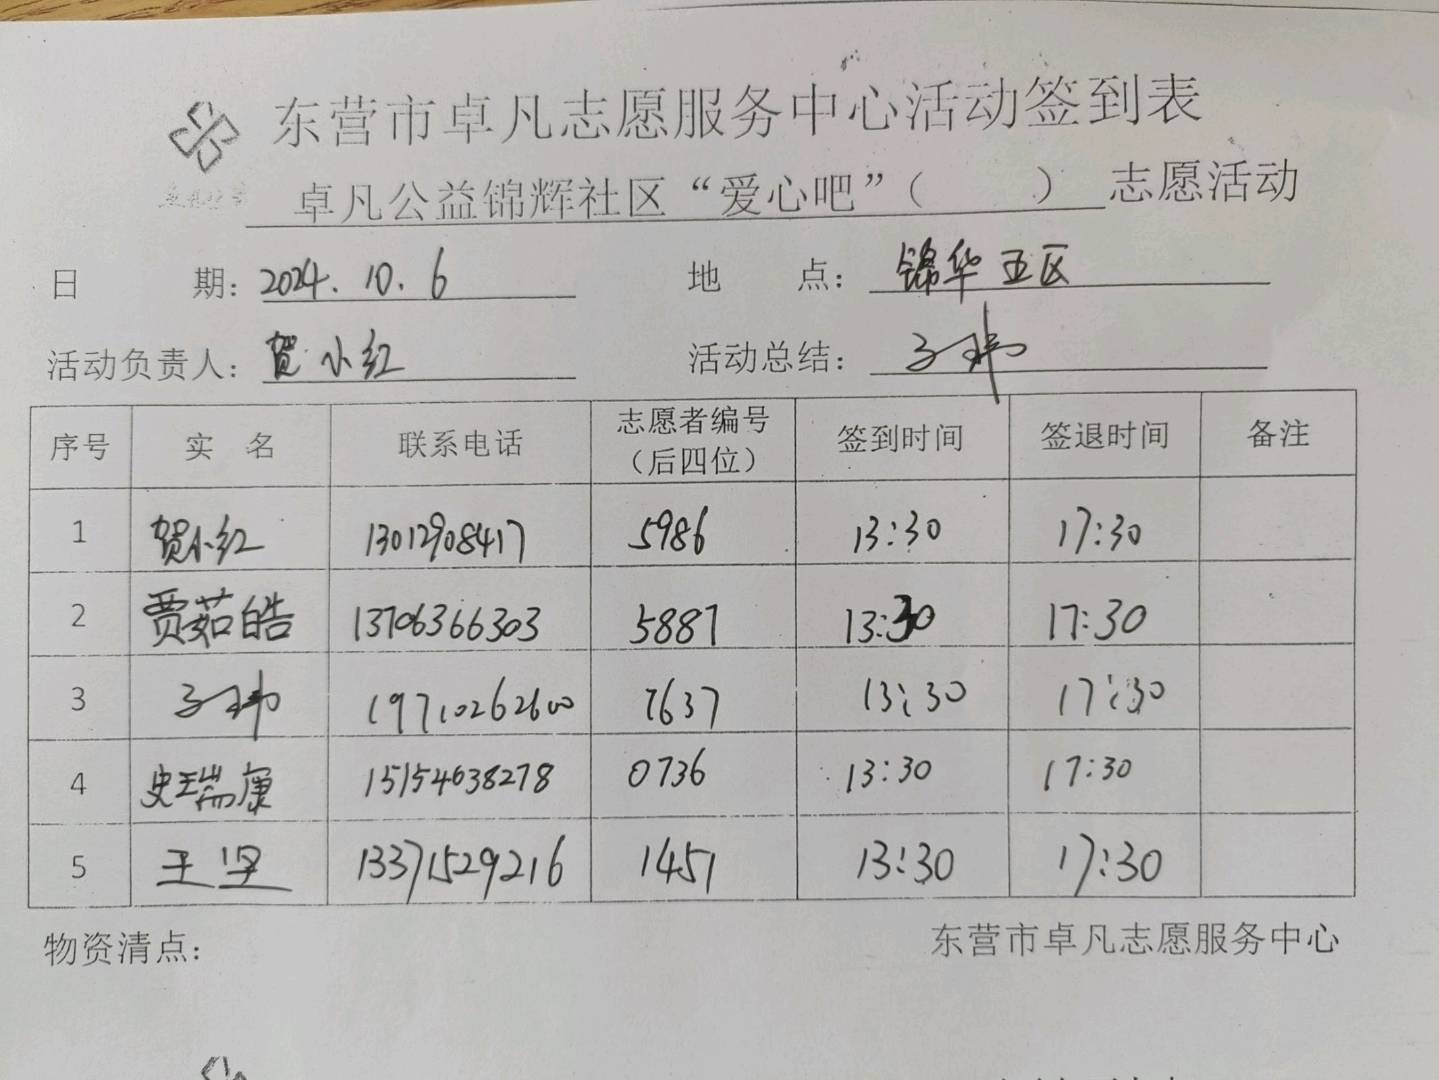 东营市卓凡志愿服务中心活动签到表
卓凡公益锦辉社区“爱心吧”（ ） 志愿活动
日 期：2024.10.6 地 点：锦华五区
活动负责人：贺小红 活动总结：
序号 实 名 联系电话 志愿者编号（后四位） 签到时间 签退时间 备注
1 贺小红 13012908417 5986 13:30 17:30
2 贾茹皓 13706366303 5887 13:30 17:30
3 19710262600 7637 13:30 17:30
4 史瑞康 15154638278 0736 13:30 17:30
5 王坚 13371529216 1451 13:30 17:30
物资清点： 东营市卓凡志愿服务中心